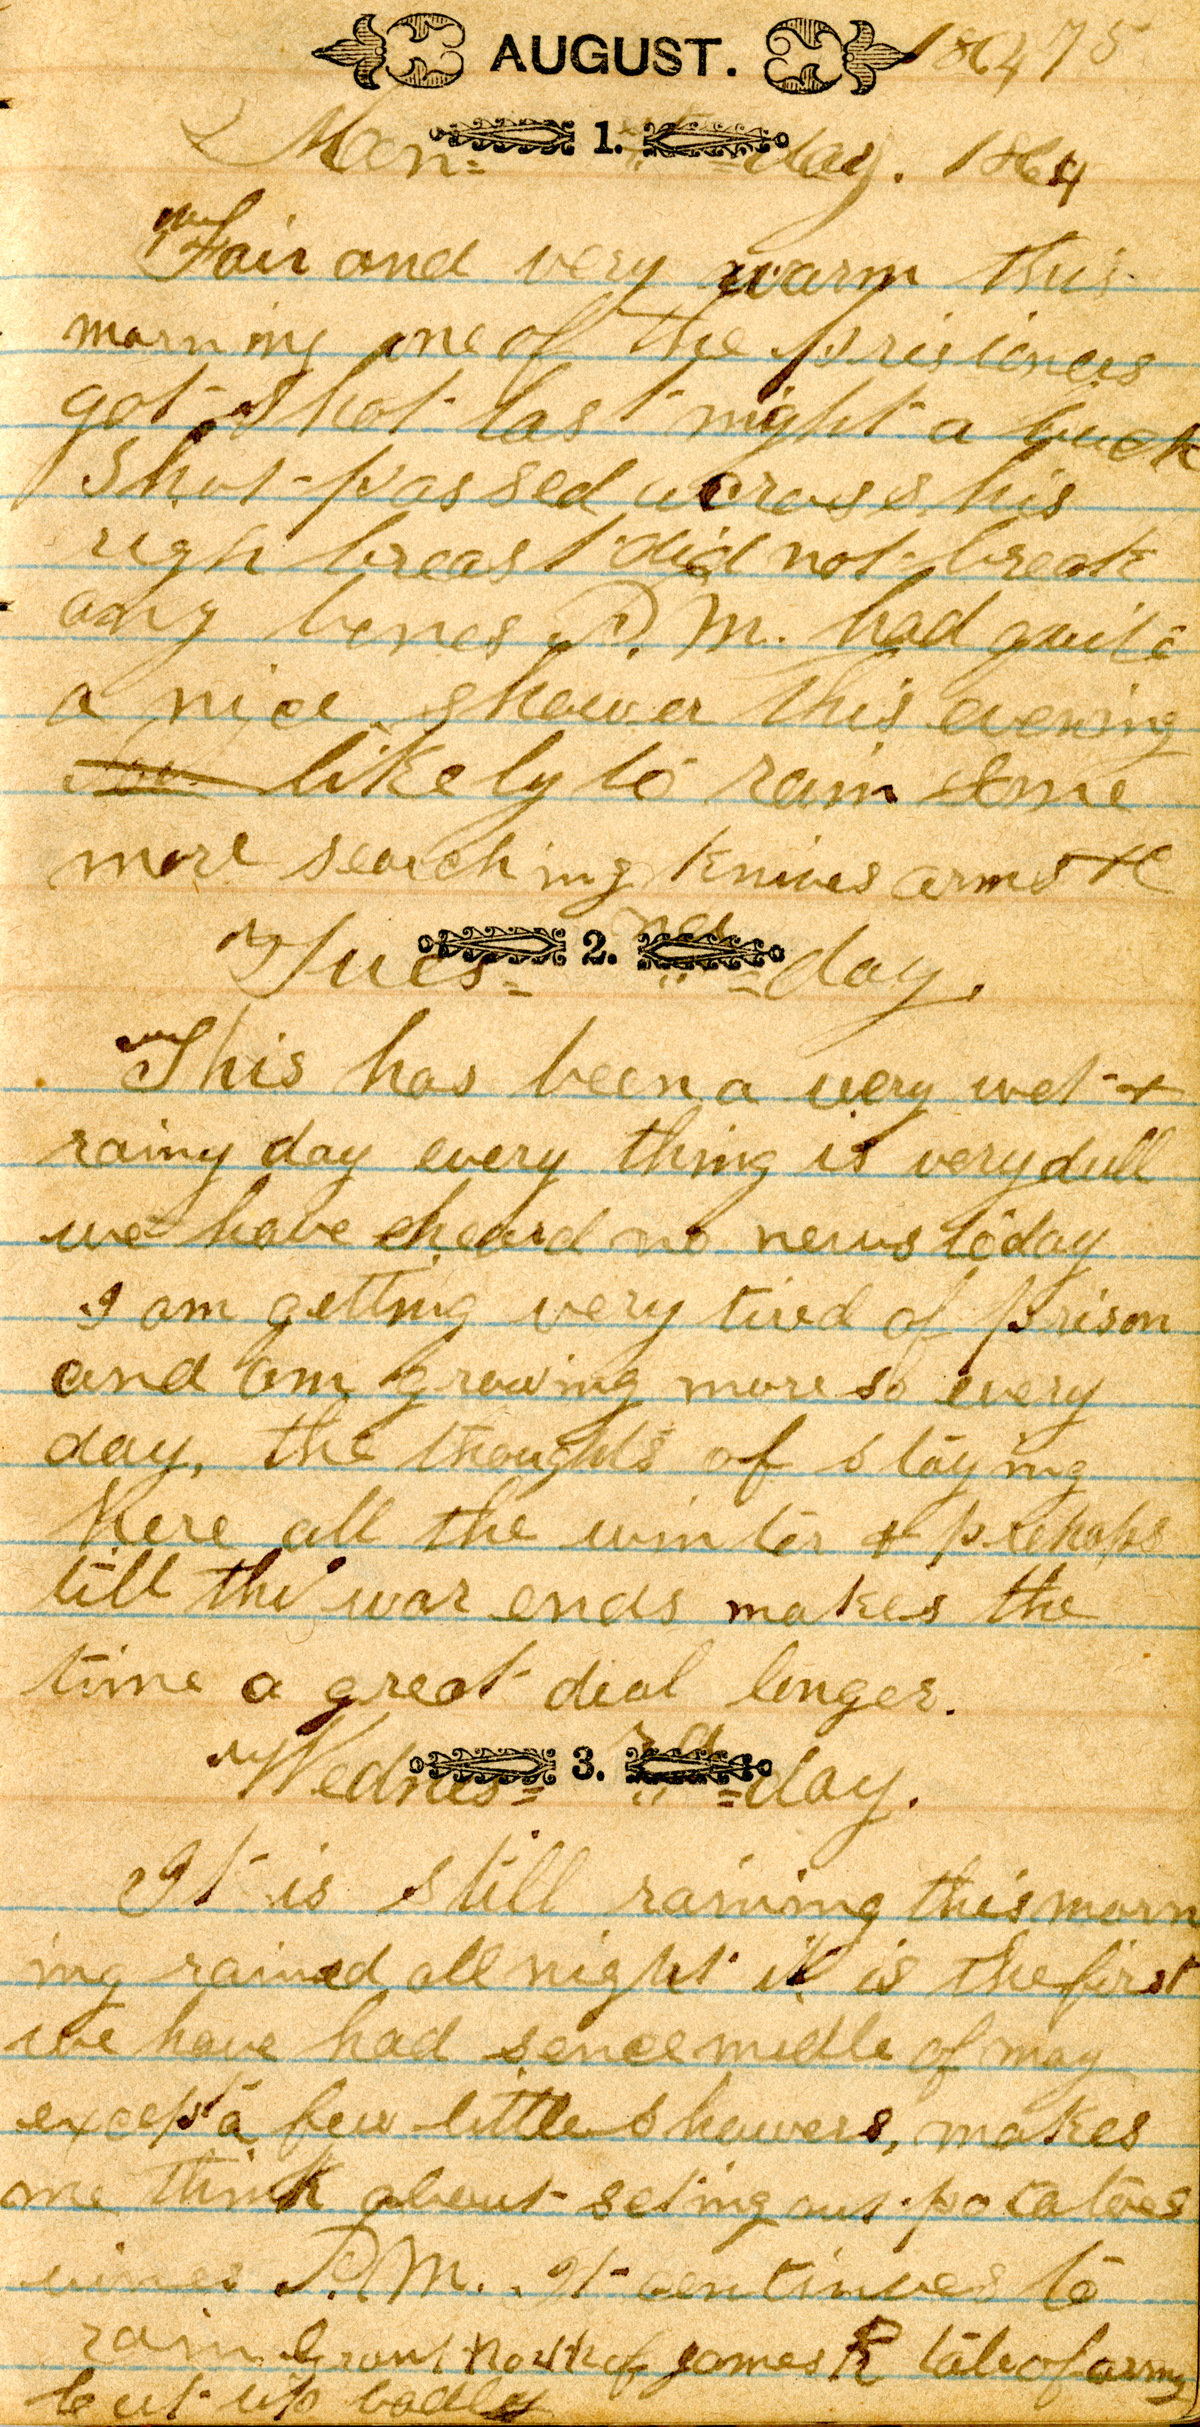 AUGUST. 1864 75
Mon= 1. =day. 1864
Fair and very warm this
morning one of the prisioners
got shot last night a buck
shot passed across his
righ breast did not break
any bones P.M. had quite
a nice shower this evening
likely to rain some
more searching knives arms &c
Tues= 2. nd =day.
This has been a very wet &
rainy day every thing is very dull
we have heard no news today
I am getting very tired of prison
and am growing more so every
day, the thoughts of staying
here all the winter & prehaps
till the war ends makes the
time a great deal longer.
Wednes= 3. rd =day.
It is still raining this morn
ing rained all night it is the first
we have had sence midle of may
except a few little showers, makes
me think about seting out potatoes
vines P.M. It continues to
rain Grant North of James R table of army
cut up badly